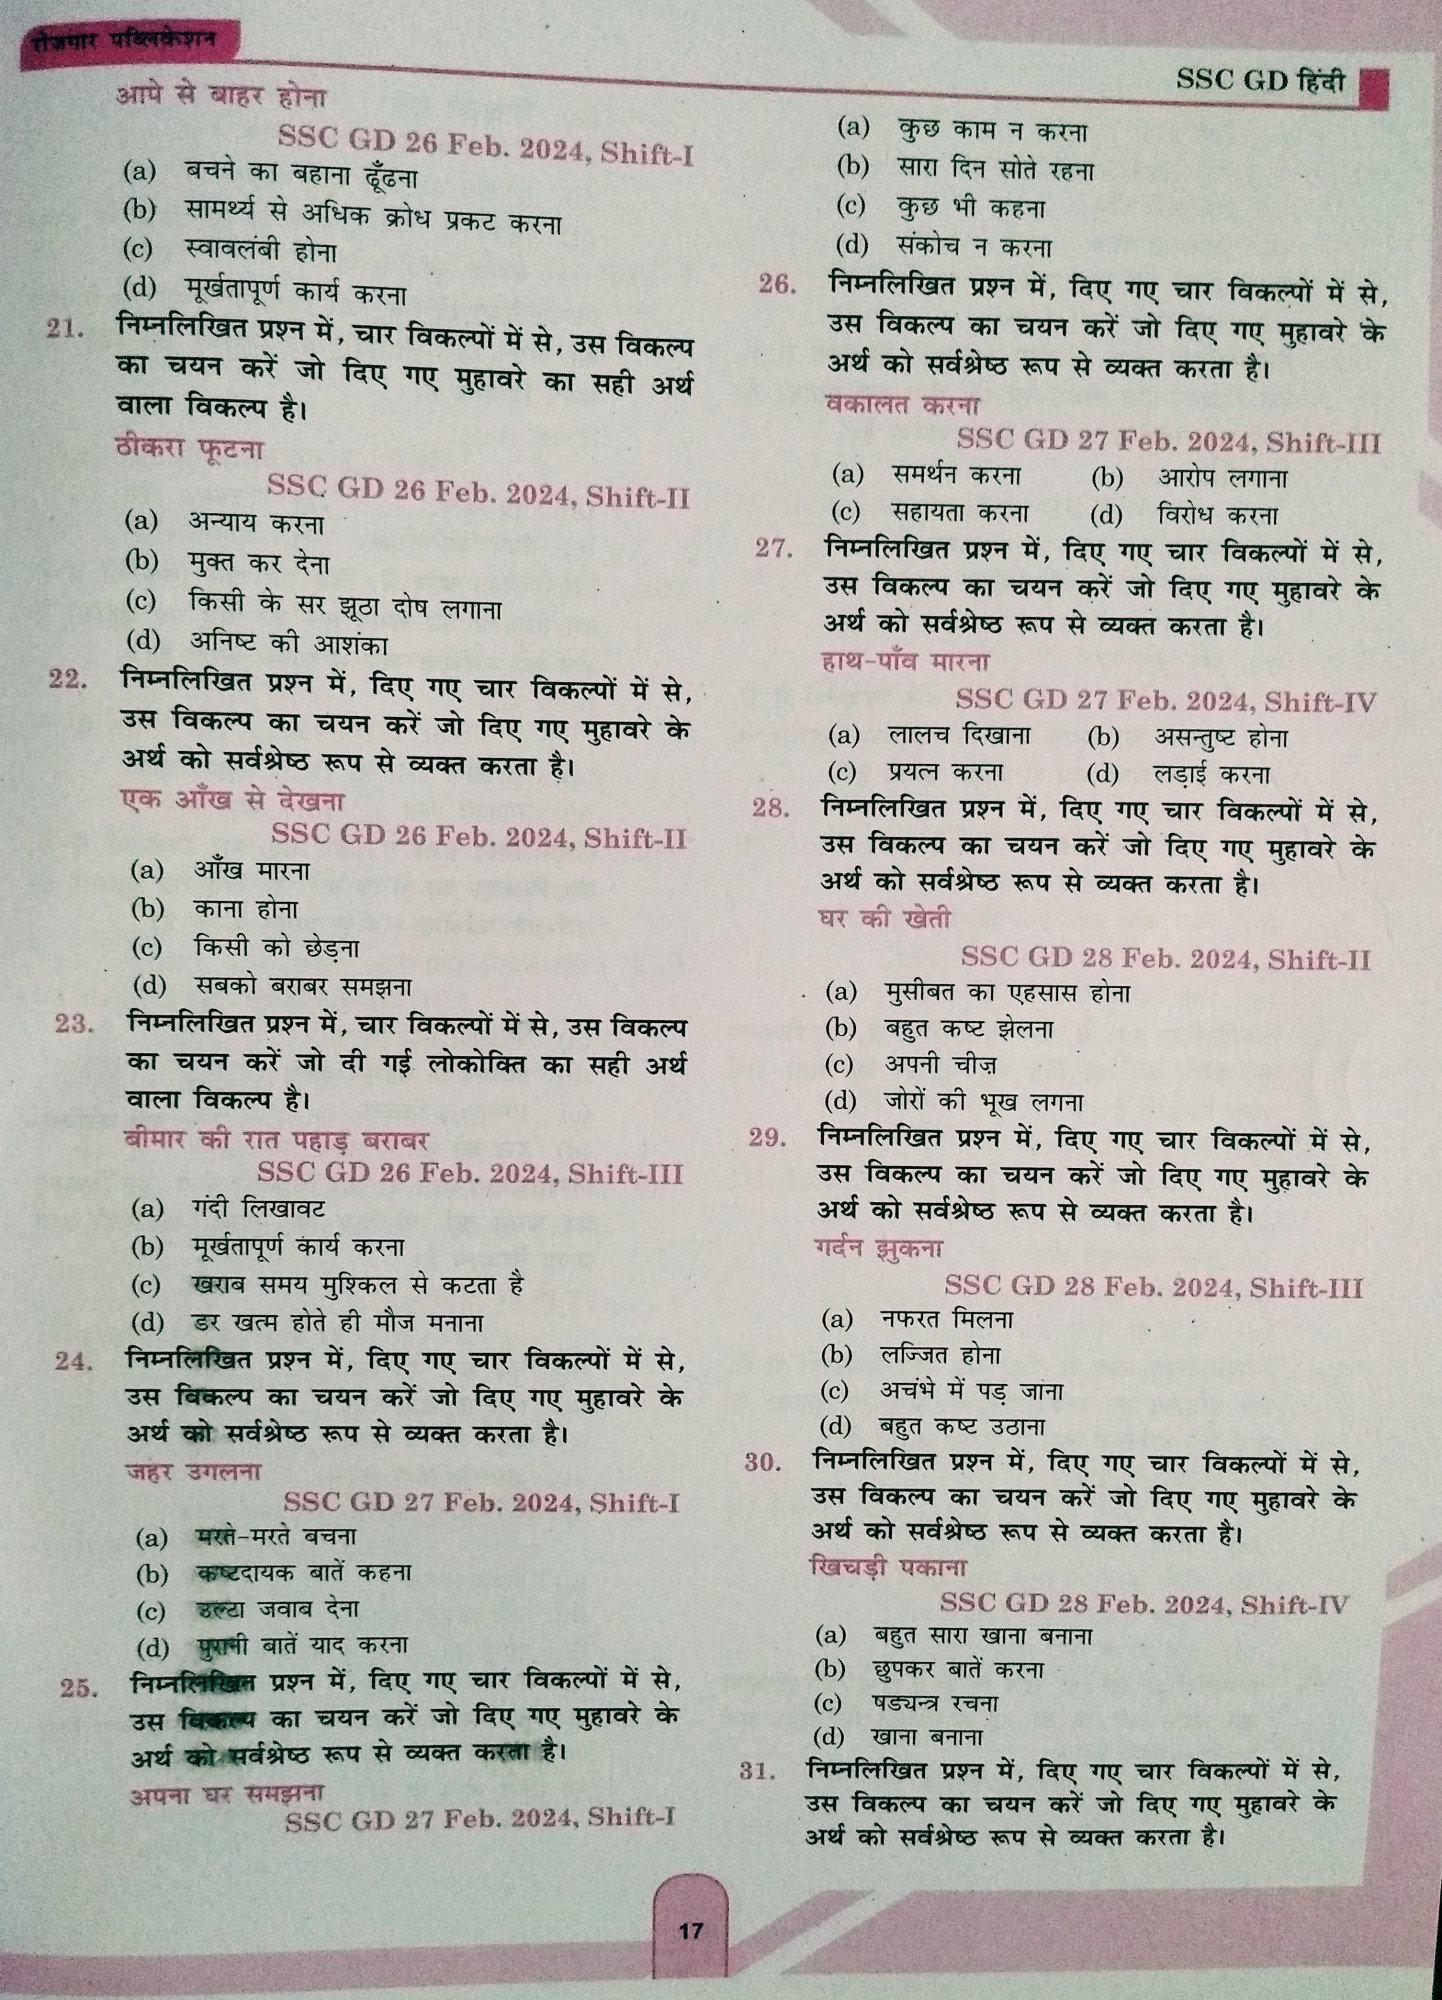 रोजगार पब्लिकेशन
SSC GD हिंदी
आपे से बाहर होना
SSC GD 26 Feb. 2024, Shift-I
(a) बचने का बहाना ढूँढना
(b) सामर्थ्य से अधिक क्रोध प्रकट करना
(c) स्वावलंबी होना
(d) मूर्खतापूर्ण कार्य करना
21. निम्नलिखित प्रश्न में, चार विकल्पों में से, उस विकल्प
का चयन करें जो दिए गए मुहावरे का सही अर्थ
वाला विकल्प है।
ठीकरा फूटना
SSC GD 26 Feb. 2024, Shift-II
(a) अन्याय करना
(b) मुक्त कर देना
(c) किसी के सर झूठा दोष लगाना
(d) अनिष्ट की आशंका
22. निम्नलिखित प्रश्न में, दिए गए चार विकल्पों में से,
उस विकल्प का चयन करें जो दिए गए मुहावरे के
अर्थ को सर्वश्रेष्ठ रूप से व्यक्त करता है।
एक आँख से देखना
SSC GD 26 Feb. 2024, Shift-II
(a) आँख मारना
(b) काना होना
(c) किसी को छेड़ना
(d) सबको बराबर समझना
23. निम्नलिखित प्रश्न में, चार विकल्पों में से, उस विकल्प
का चयन करें जो दी गई लोकोक्ति का सही अर्थ
वाला विकल्प है।
बीमार की रात पहाड़ बराबर
SSC GD 26 Feb. 2024, Shift-III
(a) गंदी लिखावट
(b) मूर्खतापूर्ण कार्य करना
(c) खराब समय मुश्किल से कटता है
(d) डर खत्म होते ही मौज मनाना
24. निम्नलिखित प्रश्न में, दिए गए चार विकल्पों में से,
उस विकल्प का चयन करें जो दिए गए मुहावरे के
अर्थ को सर्वश्रेष्ठ रूप से व्यक्त करता है।
जहर उगलना
SSC GD 27 Feb. 2024, Shift-I
(a) मरते-मरते बचना
(b) कष्टदायक बातें कहना
(c) उल्टा जवाब देना
(d) पुरानी बातें याद करना
25. निम्नलिखित प्रश्न में, दिए गए चार विकल्पों में से,
उस विकल्प का चयन करें जो दिए गए मुहावरे के
अर्थ को सर्वश्रेष्ठ रूप से व्यक्त करता है।
अपना घर समझना
SSC GD 27 Feb. 2024, Shift-I
(a) कुछ काम न करना
(b) सारा दिन सोते रहना
(c) कुछ भी कहना
(d) संकोच न करना
26. निम्नलिखित प्रश्न में, दिए गए चार विकल्पों में से,
उस विकल्प का चयन करें जो दिए गए मुहावरे के
अर्थ को सर्वश्रेष्ठ रूप से व्यक्त करता है।
वकालत करना
SSC GD 27 Feb. 2024, Shift-III
(a) समर्थन करना (b) आरोप लगाना
(c) सहायता करना (d) विरोध करना
27. निम्नलिखित प्रश्न में, दिए गए चार विकल्पों में से,
उस विकल्प का चयन करें जो दिए गए मुहावरे के
अर्थ को सर्वश्रेष्ठ रूप से व्यक्त करता है।
हाथ-पाँव मारना
SSC GD 27 Feb. 2024, Shift-IV
(a) लालच दिखाना (b) असन्तुष्ट होना
(c) प्रयत्न करना (d) लड़ाई करना
28. निम्नलिखित प्रश्न में, दिए गए चार विकल्पों में से,
उस विकल्प का चयन करें जो दिए गए मुहावरे के
अर्थ को सर्वश्रेष्ठ रूप से व्यक्त करता है।
घर की खेती
SSC GD 28 Feb. 2024, Shift-II
(a) मुसीबत का एहसास होना
(b) बहुत कष्ट झेलना
(c) अपनी चीज़
(d) जोरों की भूख लगना
29. निम्नलिखित प्रश्न में, दिए गए चार विकल्पों में से,
उस विकल्प का चयन करें जो दिए गए मुहावरे के
अर्थ को सर्वश्रेष्ठ रूप से व्यक्त करता है।
गर्दन झुकना
SSC GD 28 Feb. 2024, Shift-III
(a) नफरत मिलना
(b) लज्जित होना
(c) अचंभे में पड़ जाना
(d) बहुत कष्ट उठाना
30. निम्नलिखित प्रश्न में, दिए गए चार विकल्पों में से,
उस विकल्प का चयन करें जो दिए गए मुहावरे के
अर्थ को सर्वश्रेष्ठ रूप से व्यक्त करता है।
खिचड़ी पकाना
SSC GD 28 Feb. 2024, Shift-IV
(a) बहुत सारा खाना बनाना
(b) छुपकर बातें करना
(c) षड्यन्त्र रचना
(d) खाना बनाना
31. निम्नलिखित प्रश्न में, दिए गए चार विकल्पों में से,
उस विकल्प का चयन करें जो दिए गए मुहावरे के
अर्थ को सर्वश्रेष्ठ रूप से व्यक्त करता है।
17